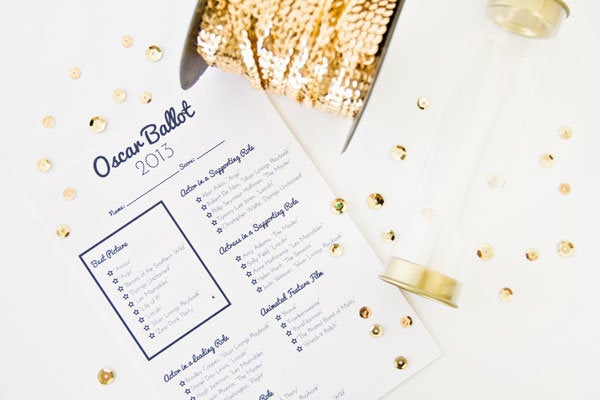 Oscar Ballot
2013
Name: Score:
Best Picture
"Amour"
"Argo"
"Beasts of the Southern Wild
"Django Unchained"
"Les Miserables"
"Life of Pi"
"Lincoln"
"Silver Linings Playbook"
"Zero Dark Thirty
Actor in a Supporting Role
Alan Arkin, "Argo"
Robert De Niro, "Silver Linings Playbook"
Philip Seymour Hoffman, "The Master"
Tommy Lee Jones, "Lincoln"
Christoph Waltz, "Django Unchained"
Actress in a Supporting Role
Amy Adams, "The Master"
Sally Field, "Lincoln"
Anne Hathaway, "Les Miserables"
Helen Hunt, "The Sessions"
Jacki Weaver, "Silver Linings Playbook
Animated Feature Film
"Brave"
"Frankenweenie"
"ParaNorman"
"The Pirates! Band of Misfits"
"Wreck It Ralph"
Actor in a Leading Role
Bradley Cooper, "Silver Linings Playbook"
Daniel Day-Lewis, "Lincoln"
Hugh Jackman, "Les Miserables"
Phoenix, "The Master"
Washington, "Flight"